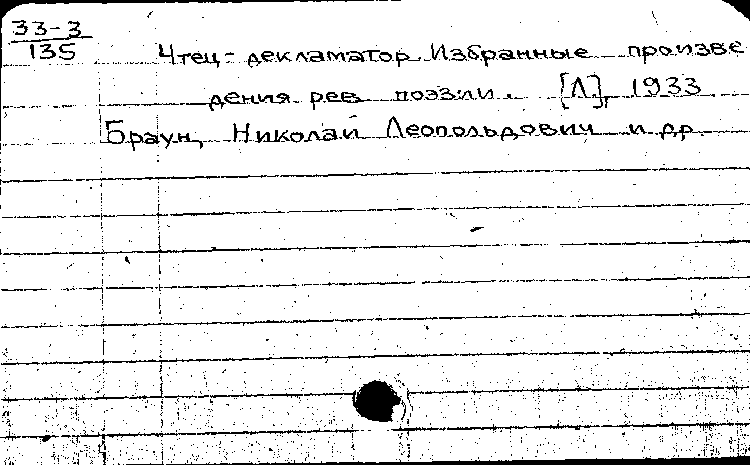 33-3
135
Чтец-декламатор Избранные произве
дения рев поэзии. [Л], 1933
Браун, Николай Леопольдович и др